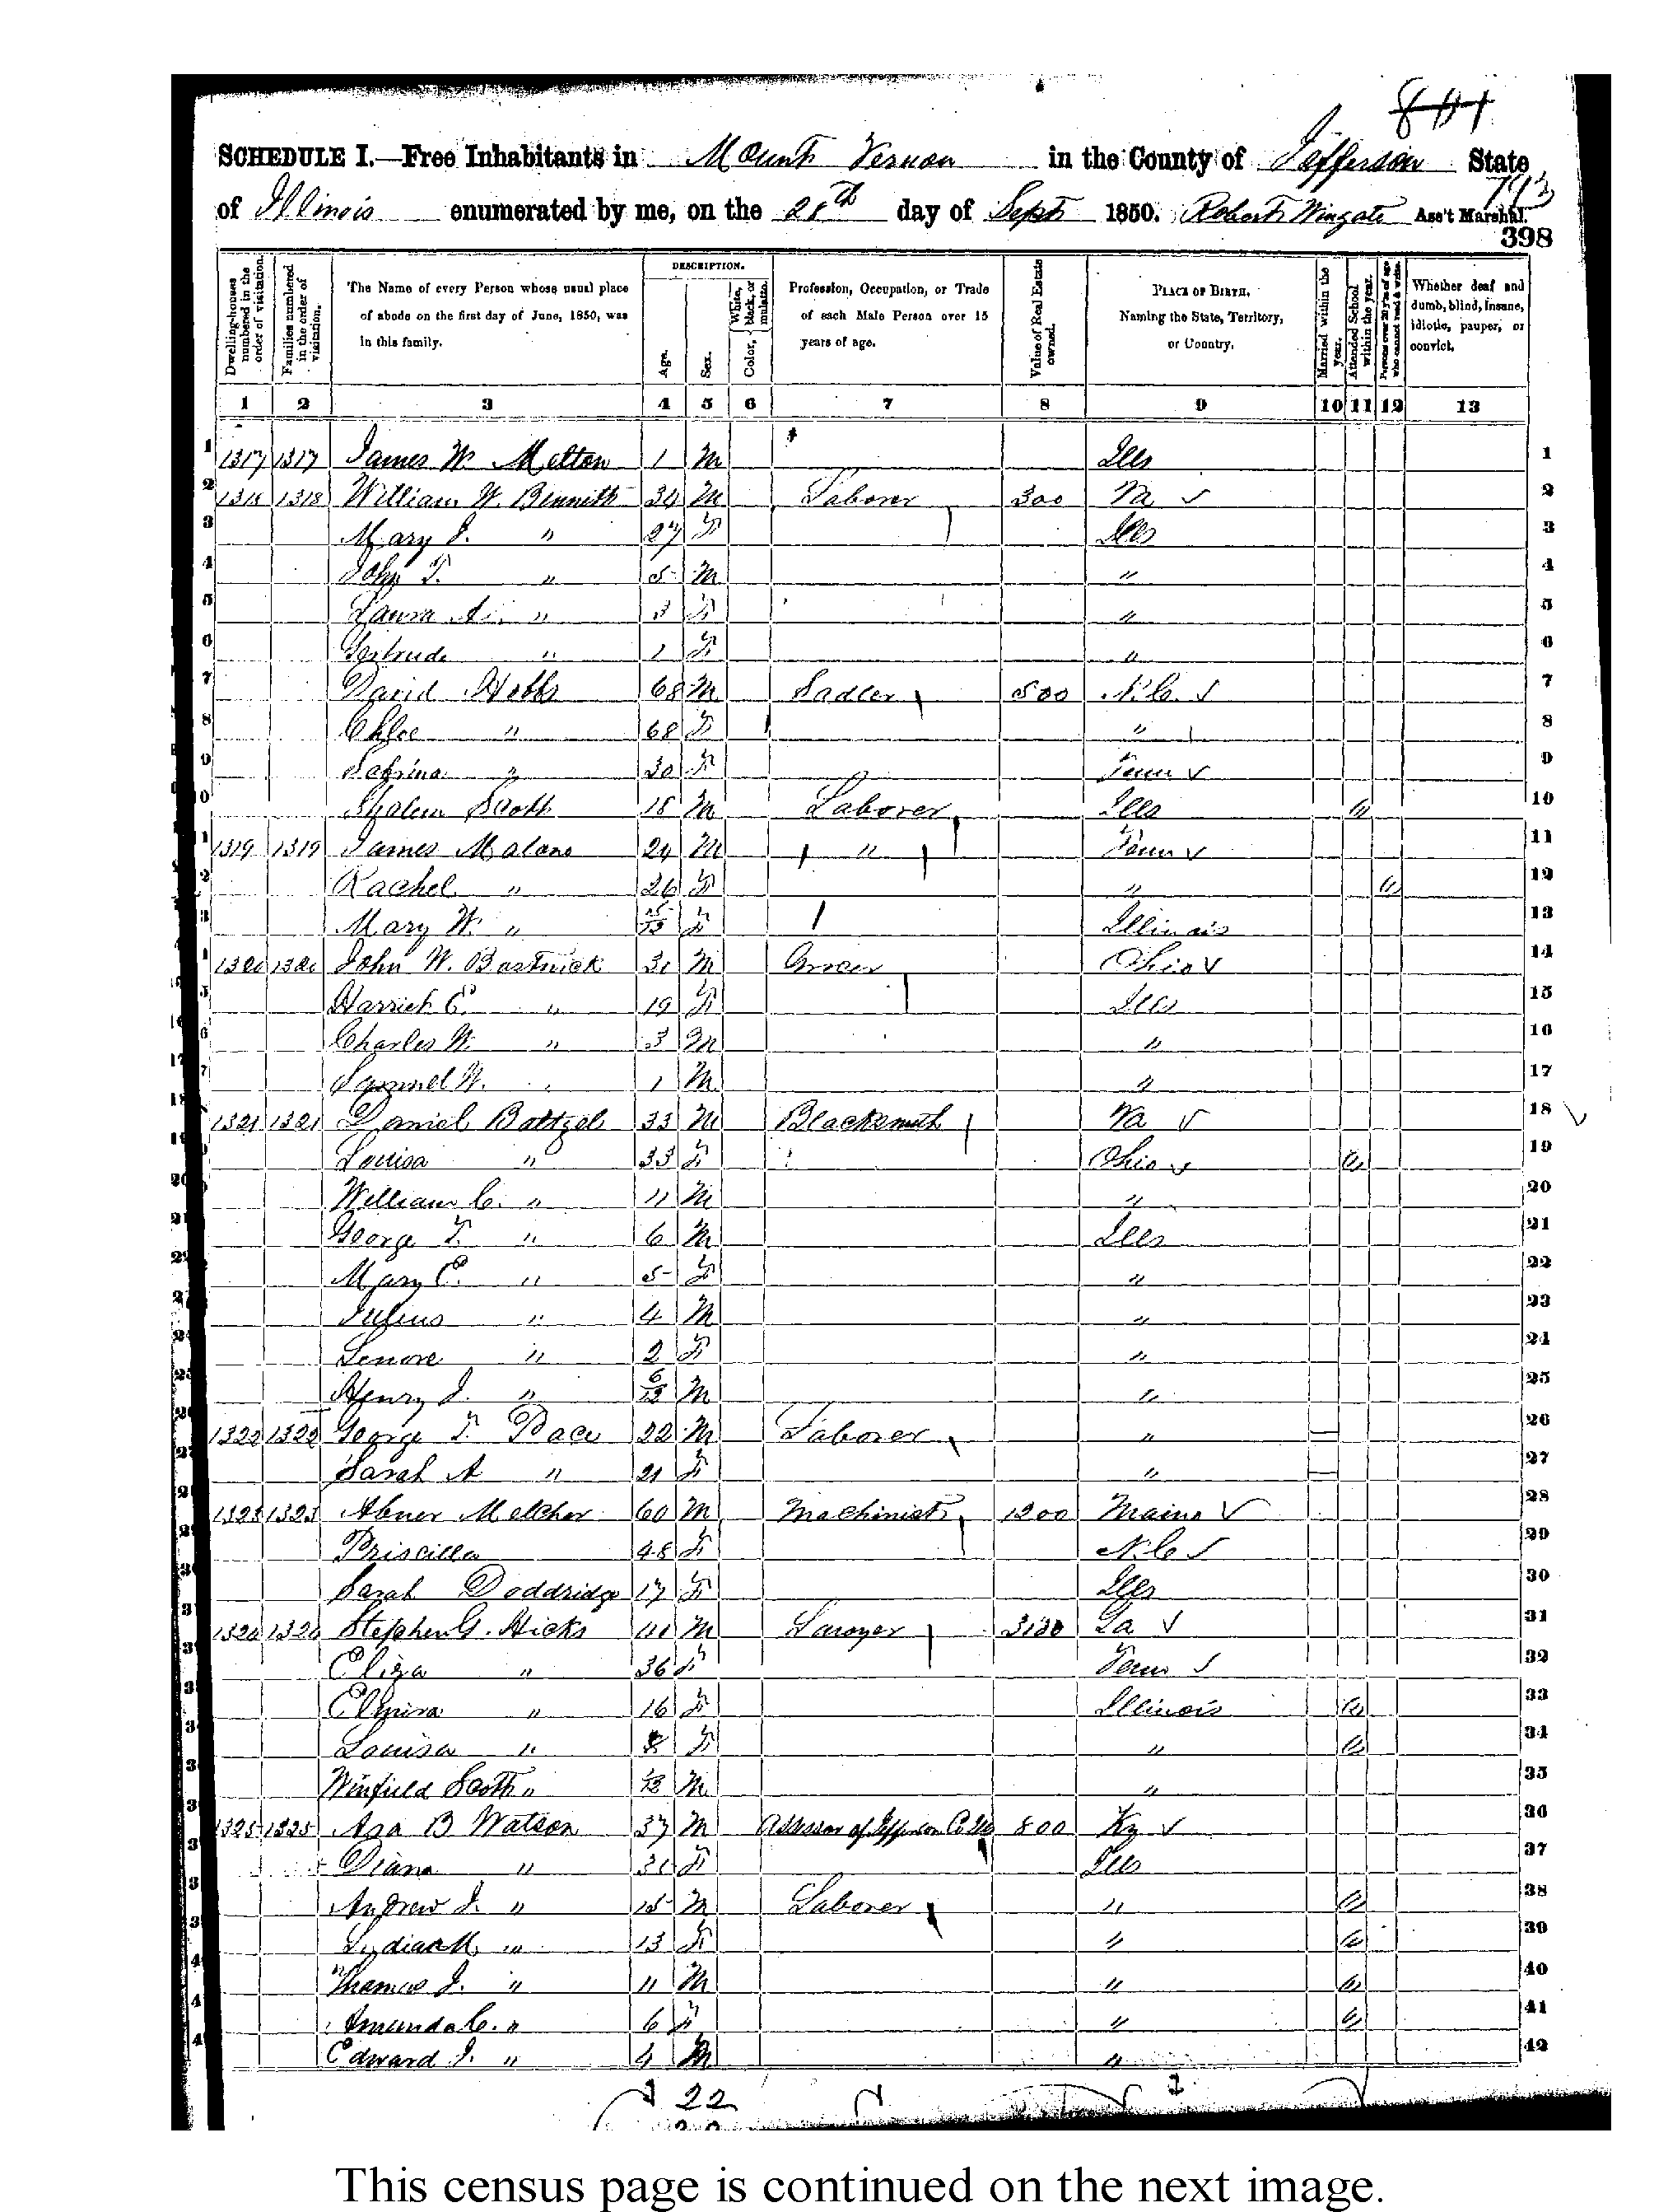 811
SCHEDULE I.—Free Inhabitants in Mount Vernon in the County of Jefferson State
793
of Illinois enumerated by me, on the 28th day of Sept 1850. Robert Wingate Ass't Marshal.
398
Dwelling-houses numbered in the order of visitation.
Families numbered in the order of visitation.
The Name of every Person whose usual place of abode on the first day of June, 1850, was in this family.
DESCRIPTION.
Age.
Sex.
Color, White, black, or mulatto.
Profession, Occupation, or Trade of each Male Person over 15 years of age.
Value of Real Estate owned.
PLACE OF BIRTH, Naming the State, Territory, or Country.
Married within the year.
Attended School within the year.
Persons over 20 y'rs of age who cannot read & write.
Whether deaf and dumb, blind, insane, idiotic, pauper, or convict.
1 2 3 4 5 6 7 8 9 10 11 12 13
1 1317 1317 James W. Melton 1 M Ills 1
2 1318 1318 William W. Bennitt 34 M Laborer 300 Va ✓ 2
3 Mary J. " 27 F Ills 3
4 John T. " 5 M " 4
5 Laura A. " 3 F " 5
6 Gertrude " 1 F " 6
7 David Hobbs 68 M Sadler 500 N.C. ✓ 7
8 Chloe " 68 F " 8
9 Sabrina " 30 F Tenn ✓ 9
10 Shalem Scott 18 M Laborer Ills 10
11 1319 1319 James Malone 24 M " Tenn ✓ 11
12 Rachel " 26 F " 12
13 Mary W. " F Illinois 13
14 1320 1320 John W. Bostwick 31 M Grocer Ohio ✓ 14
15 Harriet E. " 19 F Ills 15
16 Charles W. " 3 M " 16
17 Samuel W. " 1 M " 17
18 1321 1321 Daniel Baltzel 33 M Blacksmith Va ✓ 18 ✓
19 Louisa " 33 F Ohio ✓ 19
20 William C. " 11 M " 20
21 George T. " 6 M Ills 21
22 Mary E. " 5 F " 22
23 Julius " 4 M " 23
24 Lenore " 2 F " 24
25 Henry J. " 6/12 M " 25
26 1322 1322 George T. Pace 22 M Laborer " 26
27 Sarah A " 21 F " 27
28 1323 1323 Abner Melcher 60 M Machinist 1200 Maine ✓ 28
29 Priscilla 48 F N.C ✓ 29
30 Sarah Doddridge 17 F Ills 30
31 1324 1324 Stephen G. Hicks 41 M Lawyer 3100 Ga ✓ 31
32 Eliza " 36 F Tenn ✓ 32
33 Elmira " 16 F Illinois 33
34 Louisa " 8 F " 34
35 Winfield Scott " M " 35
36 1325 1325 Asa B Watson 37 M Assessor of Jefferson Co Ills 800 Ky ✓ 36
37 Diana " 31 F Ills 37
38 Andrew J. " 15 M Laborer " 38
39 Lydia M. " 13 F " 39
40 Thomas J. " 11 M " 40
41 Amanda C. " 6 F " 41
42 Edward J. " 4 M " 42
22
This census page is continued on the next image.